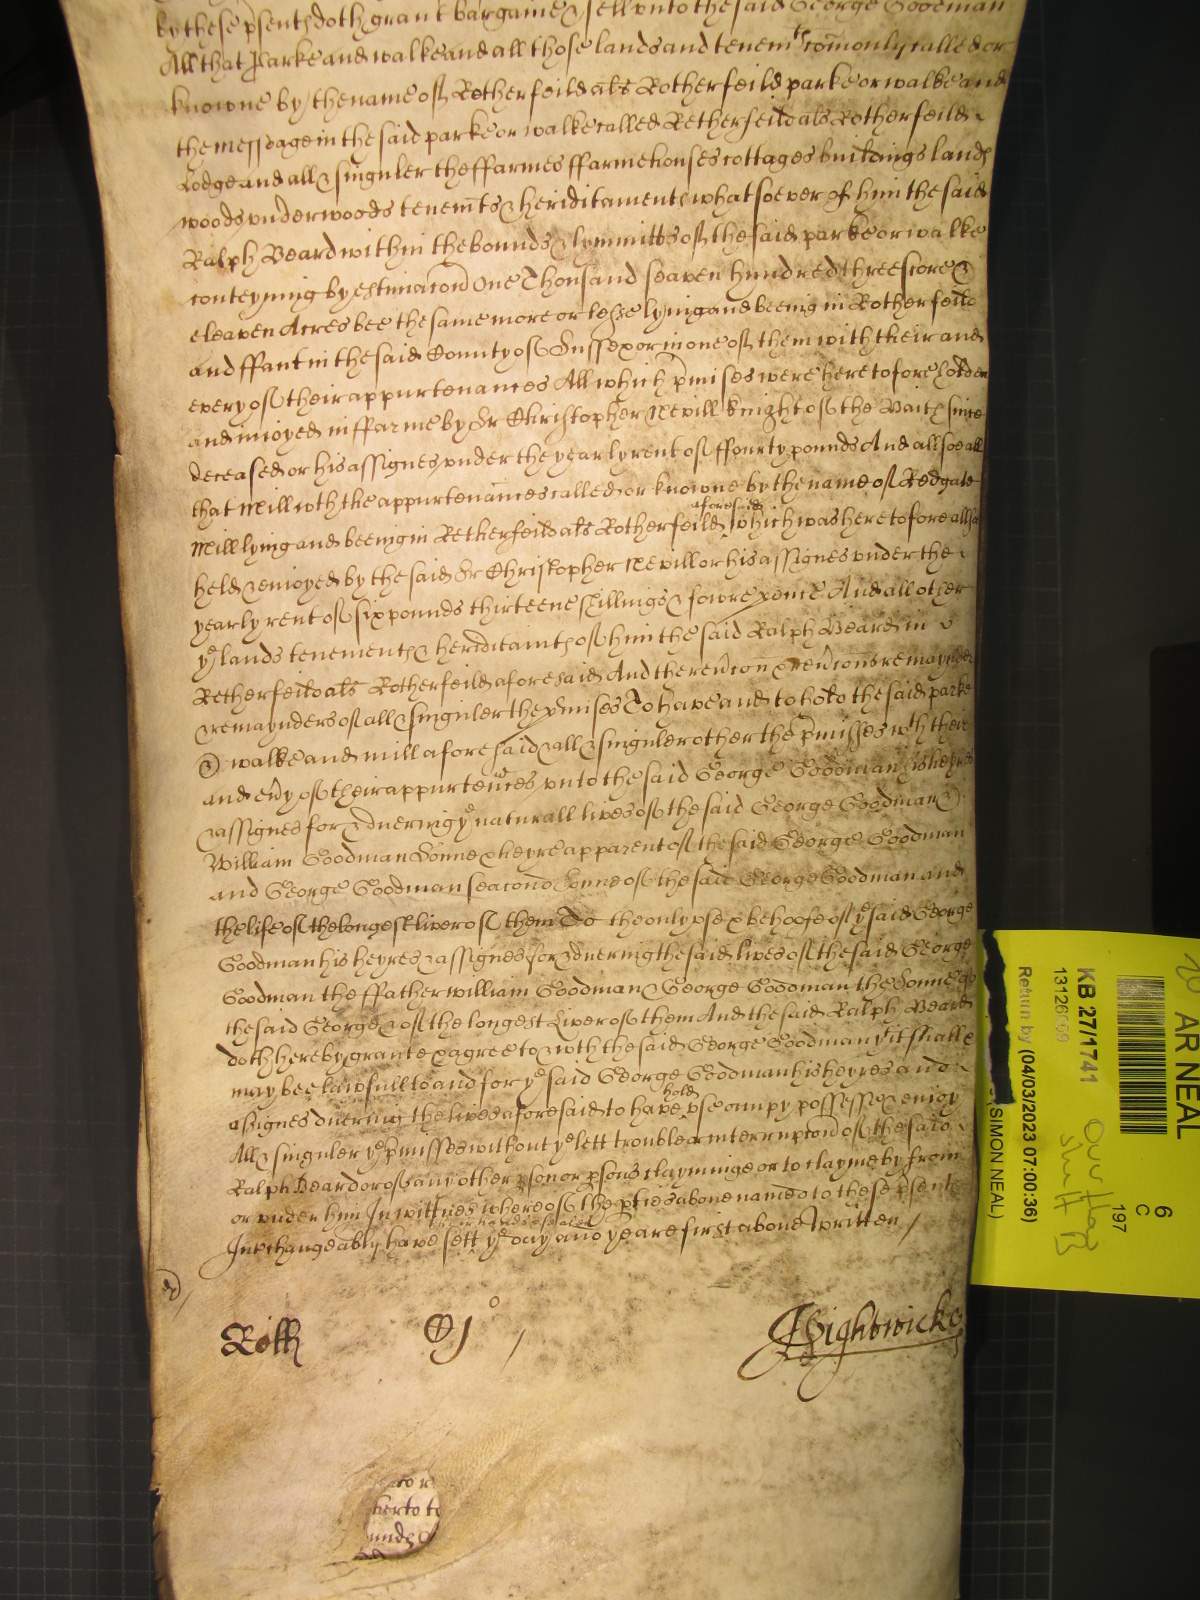 by these p̄sents doth grant bargaine & sell unto the said George Goodman
All that Parke and walke and all those lands and tenem̄ts com̄only called or
knowne by the name of Retherfeild als Rotherfeild parke or walke and
the messuage in the said parke or walke called Retherfeild als Rotherfeild
Lodge and all & singuler the ffarmes ffarmehouses cottages buildings lands
woods underwoods tenem̄ts & heriditaments whatsoever of him the said
Ralph Beard within the bounds & lymmitts of the said parke or walke
conteyning by estimac̄on One Thousand seaven hundred threescore &
eleaven Acres bee the same more or lesse lying and beeing in Rotherfeild
and ffant in the said County of Sussex or in one of them with their and
every of their appurtenances All which p̄mises were heretofore holden
and inioyed in ffarme by Sr Christopher Nevill knight of the Bath since
deceased or his assignes under the yearly rent of ffourty pounds And allsoe all
that Mill wth the appurtenances called or knowne by the name of Redgate
Mill lying and beeing in Retherfeild als Rotherfeild aforesaid which was heretofore allso
held & enioyed by the said Sr Christopher Nevill or his assignes under the
yearly rent of six pounds thirteene shillings & fowre pence And all other
ye lands tenements & heriditam̄ts of him the said Ralph Beard in
Retherfeild als Rotherfeild aforesaid And the rev̄con & rev̄cons remaynder
& remaynders of all & singuler the p̄mises To have and to hold the said parke
& walke and mill aforesaid & all & singuler other the p̄misses wth their
and ev̄y of their appurtenn̄ces unto the said George Goodman his heyres
& assignes for & dureing ye naturall lives of the said George Goodman &
William Goodman Sonne & heyre apparent of the said George Goodman
and George Goodman seacond Sonne of the said George Goodman and
the life of the longest liver of them To the only use & behoofe of ye said George
Goodman his heyres & assignes for & dureing the said lives of the said George
Goodman the ffather william Goodman & George Goodman the Sonne of
the said George & of the longest Liver of them And the said Ralph Beard
doth hereby grante & agree to & wth the said George Goodman yt it shall &
may bee lawfull to and for ye said George Goodman his heyres and
assignes dureing the lives aforesaid to have hold use occupy possesse & enioy
All & singuler ye p̄misses without ye lett trouble or interrupc̄on of the said
Ralph Beard or of any other p̄son or p̄sons clayminge or to clayme by from
or under him In witnes whereof the p̄ties above named to these p̄sents
Interchangeably have sett their hands & seales ye day and yeare first above written
Roth
Wightwicke
AR NEAL
6
C
197
KB 27/1741
13126
Return by (04/03/2023 07:00:36)
(SIMON NEAL)